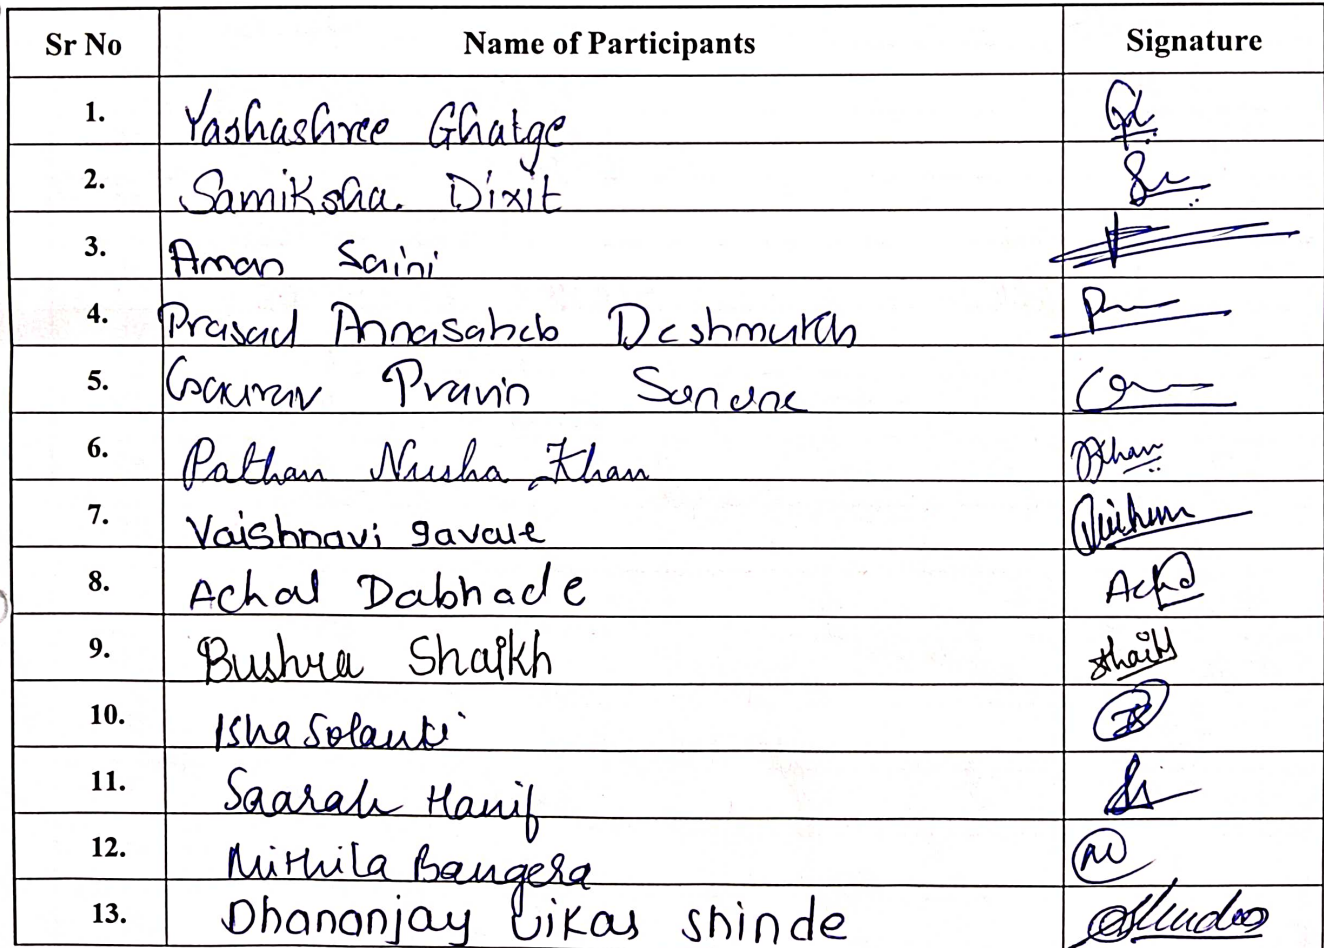 Sr No Name of Participants Signature
1. Yashashree Ghatge
2. Samiksha. Dixit
3. Aman Saini
4. Prasad Annasaheb Deshmukh
5. Gaurav Pravin Sonone
6. Pathan Nusha Khan Khan
7. Vaishnavi gavate
8. Achal Dabhade Achal
9. Bushra Shaikh Shaikh
10. Isha Solanki
11. Saarah Hanif
12. Mithila Bangera
13. Dhananjay Vikas Shinde